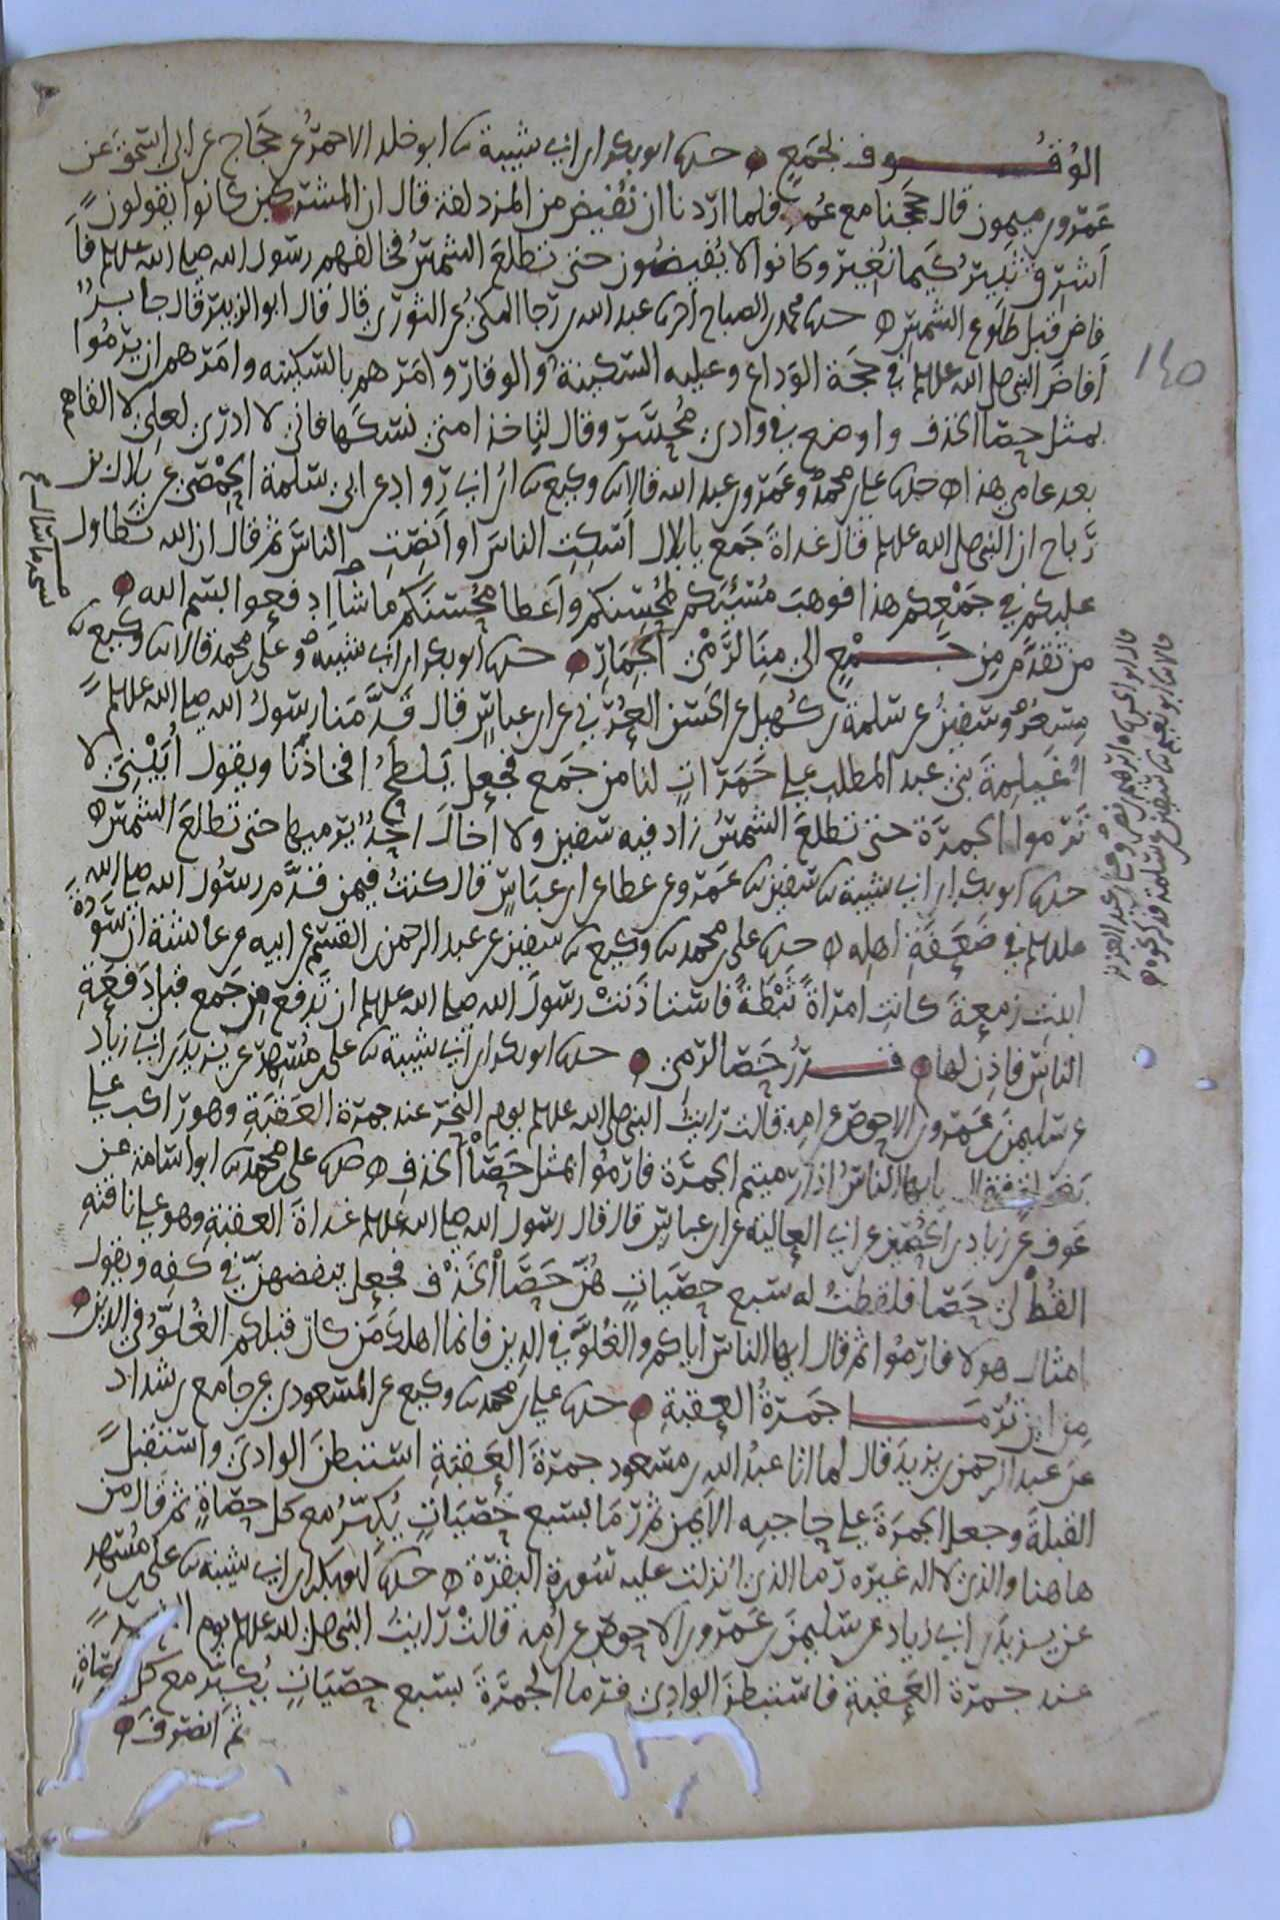 الوُقُـــــوف بجَمع حدثنا ابو بكر ابن ابي شيبة ثنا ابو خلد الاحمرُ عن حَجّاج عن ابي اسحق عن
عَمرو بن ميمون قال حججنا مع عُمر فلما اردنا ان نُفيض من المزدلفة قال ان المشركين كانوا يقولون
اَشرِق ثبيرُ كيما نغير وكانوا لا يُفيضون حتى تطلعَ الشمسُ فخالفهم رسول الله صلى الله عليه وسلم فاَ
فاض قبل طلوع الشمس حدثنا محمد بن الصباح اخبرنا عبد الله بن رجا المكيّ عن الثوري قال قال ابو الزبير قال جابرُ
اَفاضَ النبي صلى الله عليه وسلم في حجة الوداع وعليه السكينة والوقار وامرهم بالسكينه وامرهم ان يرمُوا
بمثل حصا الخذف واوضع في وادي مُحسّر وقال لتاخذ امتي نسكها فاني لا ادري لعلي لا القاهم
بعد عامي هذا حدثنا علي بن محمد وعَمرو بن عبد الله قالا ثنا وكيع ثنا ابن ابي روّاد عن ابي سلمة الحِمْصي عن بلال بن
رَباح ان النبي صلى الله عليه وسلم قال غداةَ جَمع يا بلال اَسكِتِ الناسَ او اَنصِتِ الناسَ ثم قال ان الله تطاول
عليكم في جمْعِكم هذا فوهبَ مُسيئكم لمُحسنكم واَعطا مُحسنكم ما شأ ادفعوا بسم الله
من تقدَّم مِن جَـــمْعٍ الى مِنَا لرَمْي الجِمَارِ حدثنا ابو بكر ابن ابي شيبه وعلي بن محمد قالا ثنا وكيع ثنا
مِسعَرٌ وسفينُ عن سلمة بن كُهيل عن الحسن العُرَني عن ابن عباسٍ قال قدَّمَنا رسولُ الله صلى الله عليه وسلم
اُغَيلِمةَ بني عبد المطلب على حَمَراتٍ لنا من جَمع فجعل يَلطَحُ افخاذَنَا ويقول اُبَيْنِيَّ لا
تَرموا الجمرَة حتى تطلعَ الشمسُ زاد فيه سفين ولا اِخالَ احدًا يرميها حتى تطلعَ الشمس
حدثنا ابو بكر ابن ابي شيبة ثنا سفين ثنا عَمرو عن عطا عن ابن عباسٍ قال كنتُ فيمن قدَّم رسُولُ الله صلى الله
عليه وسلم في ضَعَفَةِ اهله حدثنا علي بن محمد ثنا وكيع ثنا سفين عن عبد الرحمن بن القسم عن ابيه عن عايشة ان سَوْدَةَ
ابنت زمعةَ كانت امراةً ثَبْطَةً فاستاذنتْ رسولَ الله صلى الله عليه وسلم ان تَدفع مِن جَمع قبل دَفعَةِ
الناس فاذن لها قـــدرُ حَصَا الرمي حدثنا ابو بكر ابن ابي شيبة ثنا علي بن مُسهِر عن يزيدَ بن ابي زياد
عن سليمن بن عَمرو بن الاحوص عن امه قالت رايتُ النبي صلى الله عليه وسلم يوم النحر عند جمرة العقبَةِ وهو راكب على
يا ايها الناسُ اذا رميتم الجمرَة فارمُوا بمثل حَصَا الخذف حدثنا علي بن محمد ثنا ابو اسامة عن
عَوف عن زياد بن الحُصَين عن ابي العاليه عن ابن عباس قال قال رسول الله صلى الله عليه وسلم غداةَ العقبةِ وهو على ناقتهِ
القُطْ لي حَصَا فلقطتُ له سبع حصَياتٍ هُنّ حَصَا الخذْف فجعل ينفضهنّ في كفِه ويقول
امثال هولا فارمُوا ثم قال ايها الناس اياكم والغُلوَّ في الدين فانما اهلكَ مَن كان قبلكم الغُلوُّ في الدين
مِن اين تُرمَـــا جَمرةُ العقبةِ حدثنا علي بن محمد ثنا وكيع عن المسعودي عن جامع بن شداد
عن عبد الرحمن بن يزيدَ قال لما اتا عبدُ الله بن مسعود جمرَةَ العَقبَةِ استبطنَ الوادي واستقبل
القبلةَ وجعل الجمرَةَ على حاجبه الايمن ثم رَمَا بسبع حَصَياتٍ يُكبِّرُ مع كل حصاةٍ ثم قال من
هاهنا والذي لا اله غيره رما الذي اُنزلت عليه سُورة البقرَة حدثنا ابو بكر ابن ابي شيبة ثنا علي بن مُسهِر
عن يزيدَ بن ابي زياد عن سليمن بن عَمرو بن الاحوص عن اُمه قالتْ رايتُ النبي صلى الله عليه وسلم يوم
عند جمرة العَقبةِ فاستبطنَ الوادي فرما الجمرَةَ بسبع حصَياتٍ يُكبِّر مع كل حصَاةٍ
ثم انصرفَ
١٤٥
قال ابو الحسن وابرهيم بن نصر وعلي بن عبد العزيز
قالا ثنا ابو نعيم ثنا سفين عن سلمة فذكر نحوه